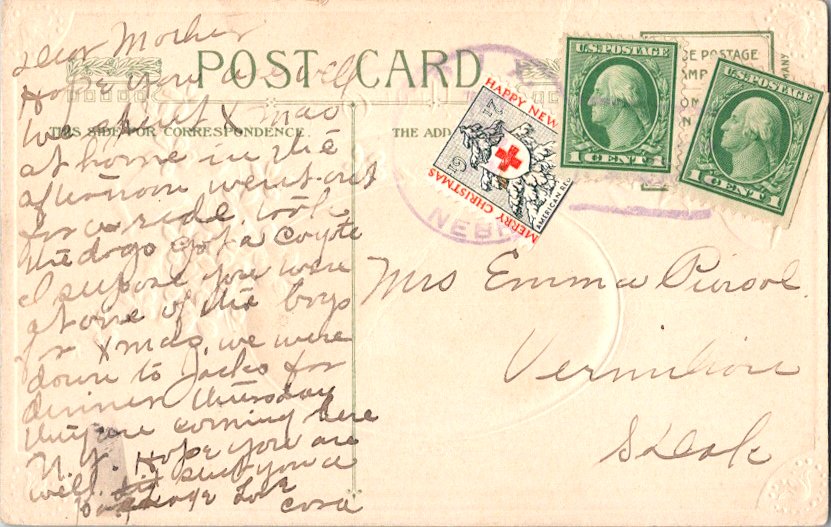 Dear Mother
Hope you are well
we spent Xmas
at home in the
afternoon went out
for a ride. took
the dogs got a Coyote
I suppose you were
at one of the boys
for Xmas, we were
down to Jacks for
dinner thursday
they are coming here
N.Y. Hope you are
well. sent you a
package Love
Cora
POST CARD
THIS SIDE FOR CORRESPONDENCE.
THE ADD
HAPPY NEW
1917
MERRY CHRISTMAS
AMERICAN RED
NEB
U.S. POSTAGE
1 CENT 1
CE POSTAGE
U.S. POSTAGE
1 CENT 1
MANY
Mrs Emma Piersol.
Vermilion
S Dak